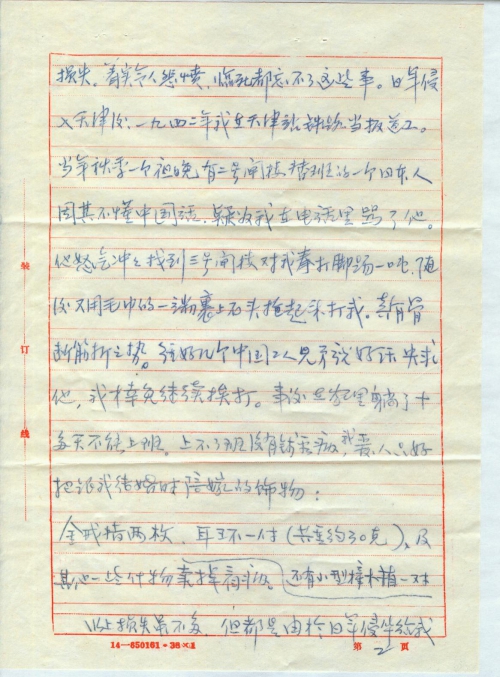 损失，着实令人愤慨，临死都忘不了这些事。日军侵
入天津后，一九四二年我在天津站铁路当扳道工。
当年秋季一个夜晚，有二号闸楼替班的一个日本人
因其不懂中国话，疑为我在电话里骂了他。
他怒气冲冲找到三号闸楼对我拳打脚踢一顿，随
后又用毛巾的一端裹上石头抡起来打我。真有骨
断筋折之势。经好几个中国工人兄弟说好话央求
他，我幸免继续挨打。事后在家里躺了十
多天不能上班。上不了班没有钱看病，我爱人只好
把跟我结婚时陪嫁的饰物：
金戒指两枚，耳环一付（共重约30克），及
其他一些什物卖掉看病。还有小型樟木箱一对
以上损失虽不多，但都是由于日军侵华给我
装
订
线
14—650161·38×1
第 2 页